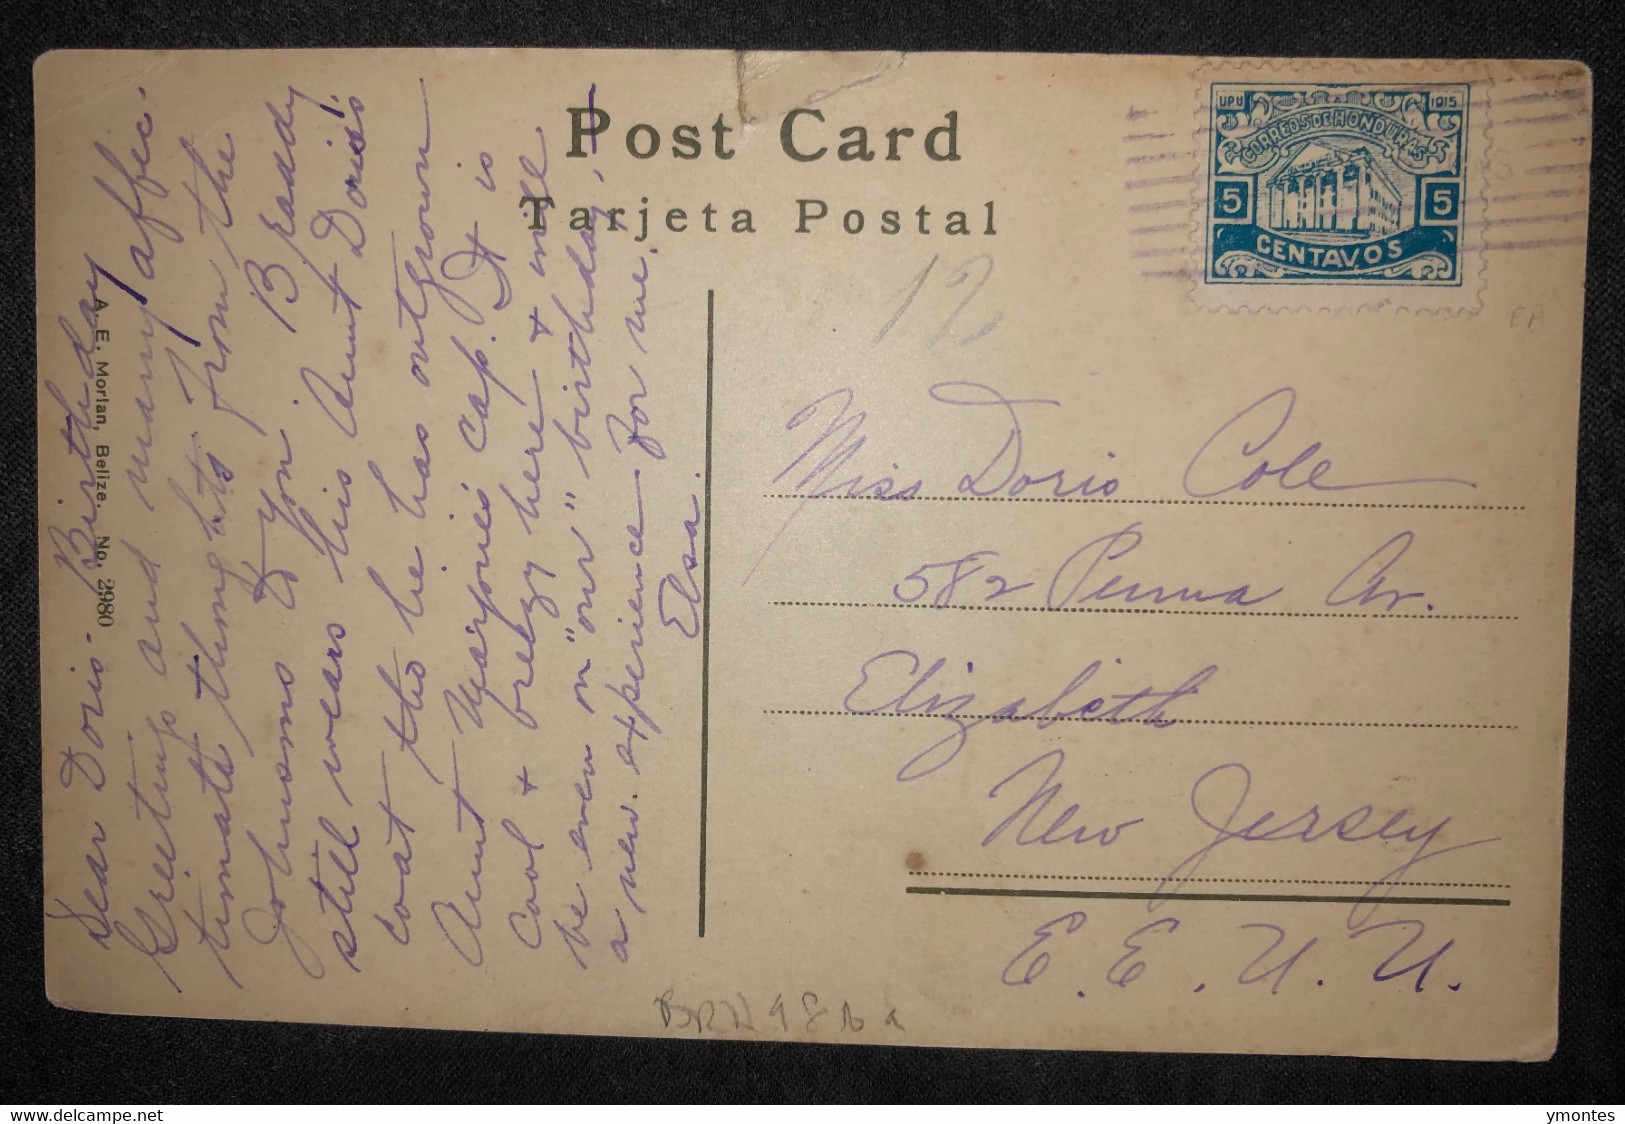 Post Card
Tarjeta Postal
UPU 1915
CORREOS DE HONDURAS
5 5
CENTAVOS
12
EA
A. E. Morlan, Belize. No. 2980
Dear Doris - Birthday
Greetings and many affec-
timate thoughts from the
Johnsons to you! Bready
still wears his Aunt Doris's
coat tho he has outgrown
Aunt Marjorie's cap. It is
cool & breezy here & will
be even on "our" birthday, -
a new experience for me.
Elsa.
Miss Doris Cole
582 Penna Av.
Elizabeth
New Jersey
E. E. U. U.
delcampe.net
ymontes